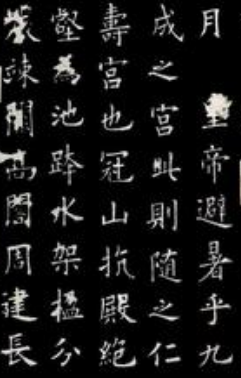 月 皇帝避暑乎九
成之宮此則隨之仁
壽宮也冠山抗殿絕
壑為池跨水架楹分
巖竦闕高閣周建長